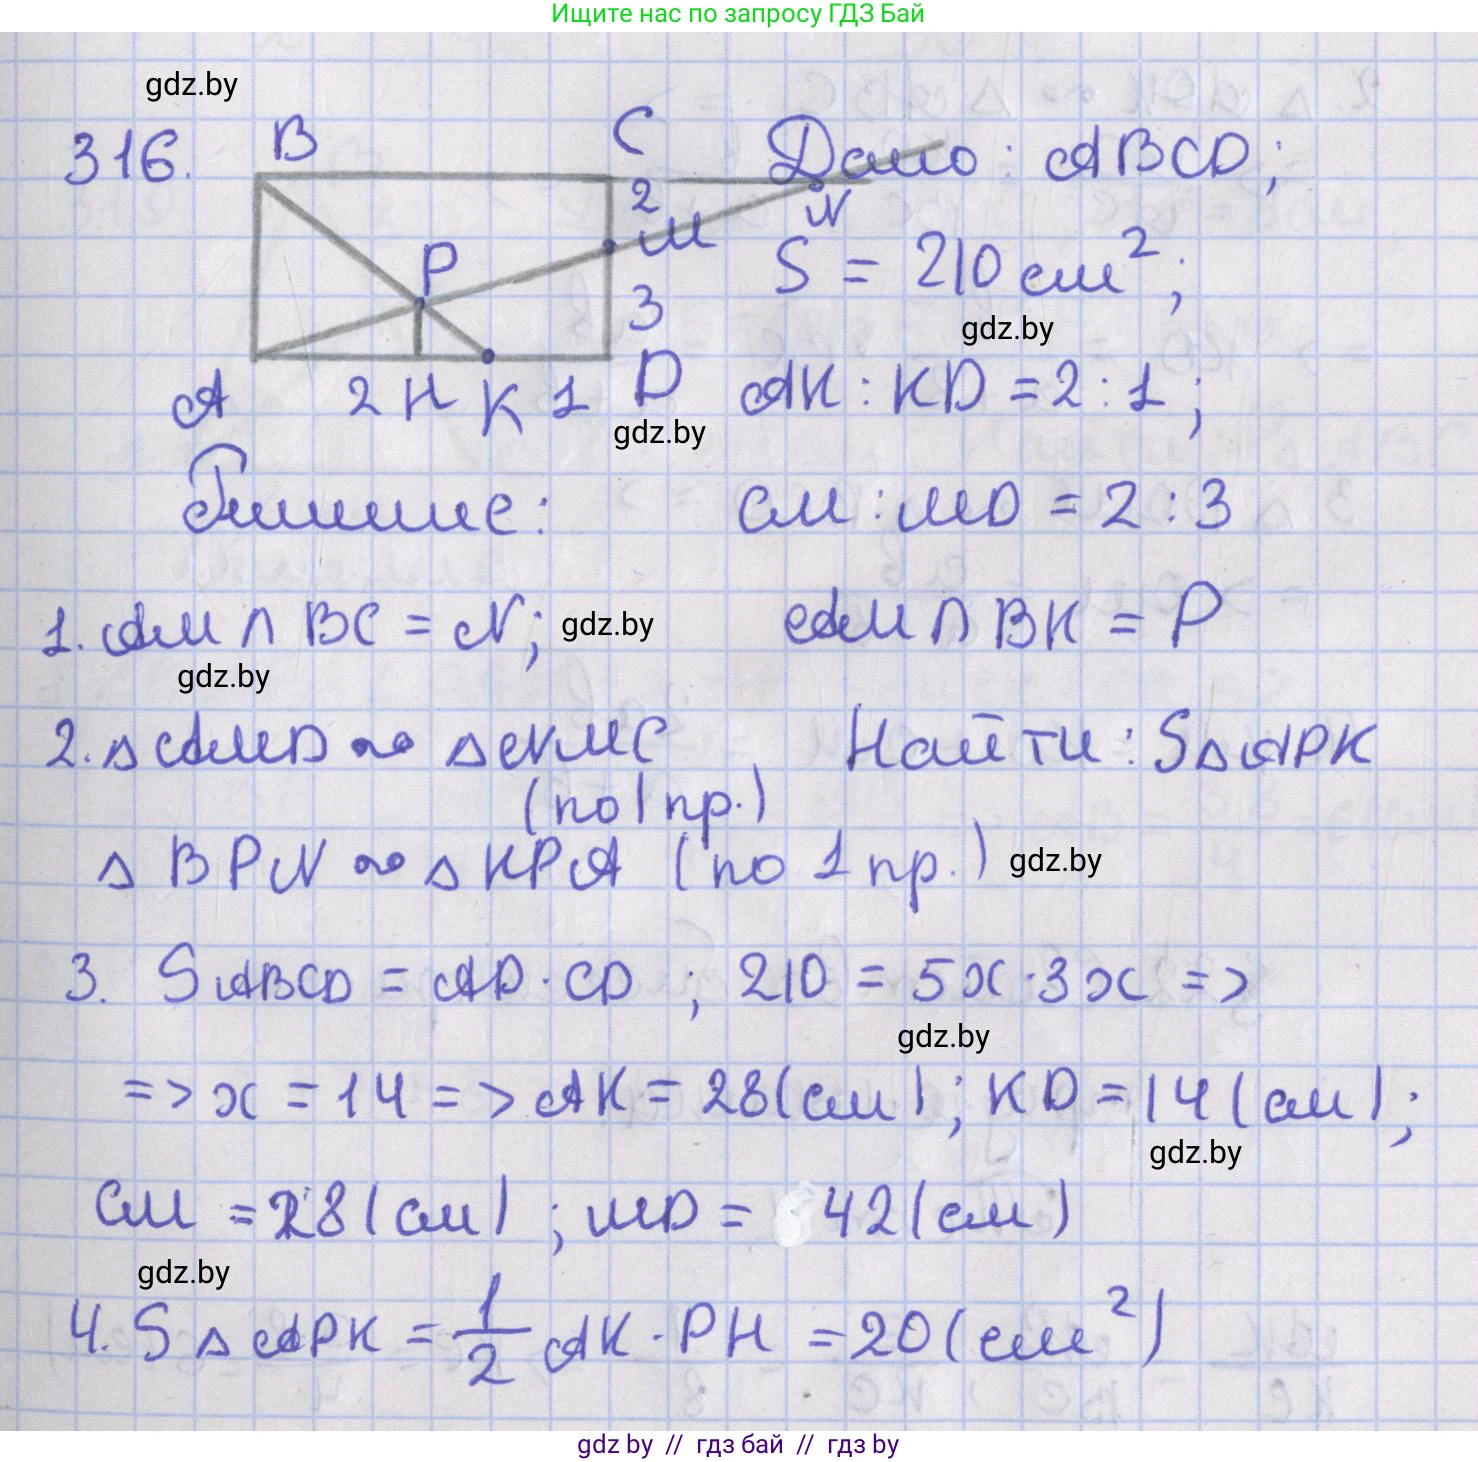 Ищите нас по запросу ГДЗ Бай
gdz.by
316. B C Дано: ABCD;
2 M N
P S = 210 см²;
3 gdz.by
A 2 H K 1 D AK : KD = 2 : 1;
gdz.by
Решение: CM : MD = 2 : 3
1. AM ∩ BC = N; gdz.by AM ∩ BK = P
gdz.by
2. △ AMD ~ △ NMC Найти: S△APK
(по 1 пр.)
△ BPN ~ △ KPA (по 1 пр.) gdz.by
3. SABCD = AD · CD ; 210 = 5x · 3x =>
gdz.by
=> x = 14 => AK = 28 (см); KD = 14 (см);
gdz.by
CM = 28 (см) ; MD = 42 (см)
gdz.by
4. S △ APK = 1/2 AK · PH = 20 (см²)
gdz by // гдз бай // гдз by